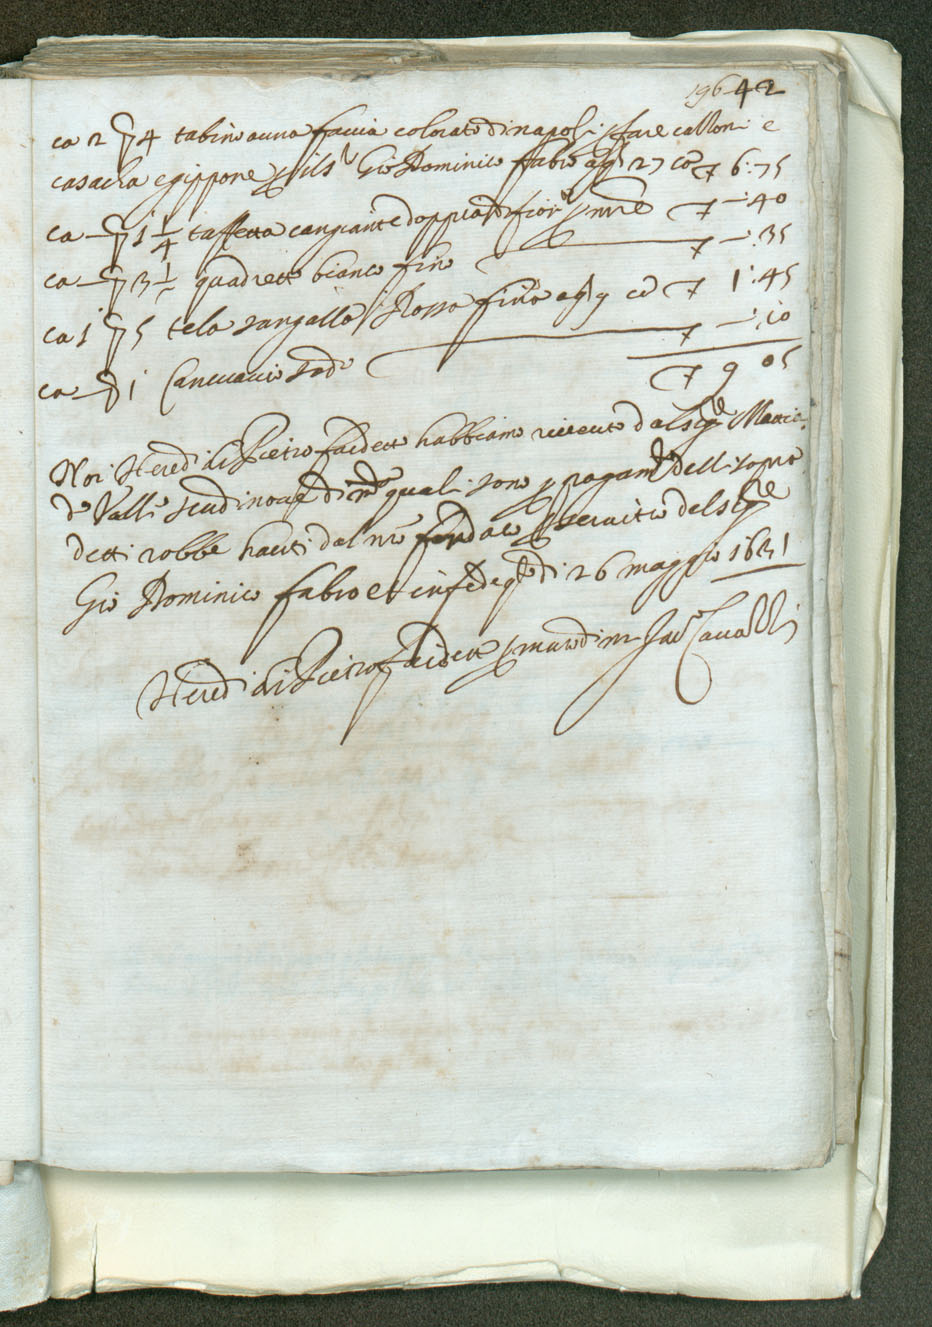 196 42
ca 2 p 4 tabino a una faccia colorato di napoli p fare calzoni e
casacha e gippone p il sr Gio Dominico fabio a p 27 ca ▽ 6:75
ca — p 1 1/4 taffetta cangiante doppio di fior p mre ▽ —:40
ca — p 3 1/2 quadretto bianco fino ▽ —:35
ca 1 p 5 tela sangallo Rossa fina a p 9 ca ▽ 1:45
ca — p 1 Canevaccio sodo ▽ —:10
▽ 9 05
Noi Heredi di Pietro faidetti habbiamo riceuto dal sigr
de Valli scudi noue di mta quali sono p pagamto delli sopra
detti robbe hauti dal nro fondaco p seruitio del sigre
Gio Dominico fabio et in fede qto di 26 maggio 1631
Heredi di Pietro faidetti p mano di me Jac Caualli